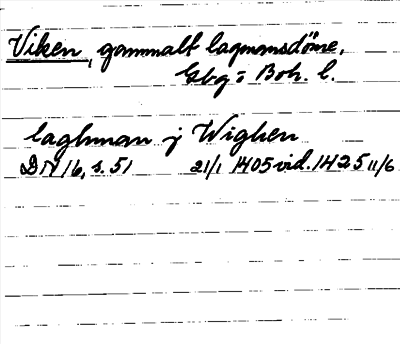 Viken, gammalt lagmansdöme,
Gbg o Boh. l.
laghman j Wighen
DN 16, s. 51 21/1 1405 vid. 1425 11/6